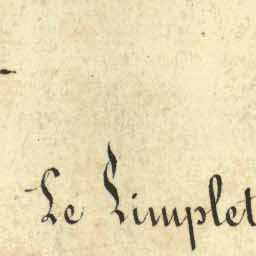 Le Limplet